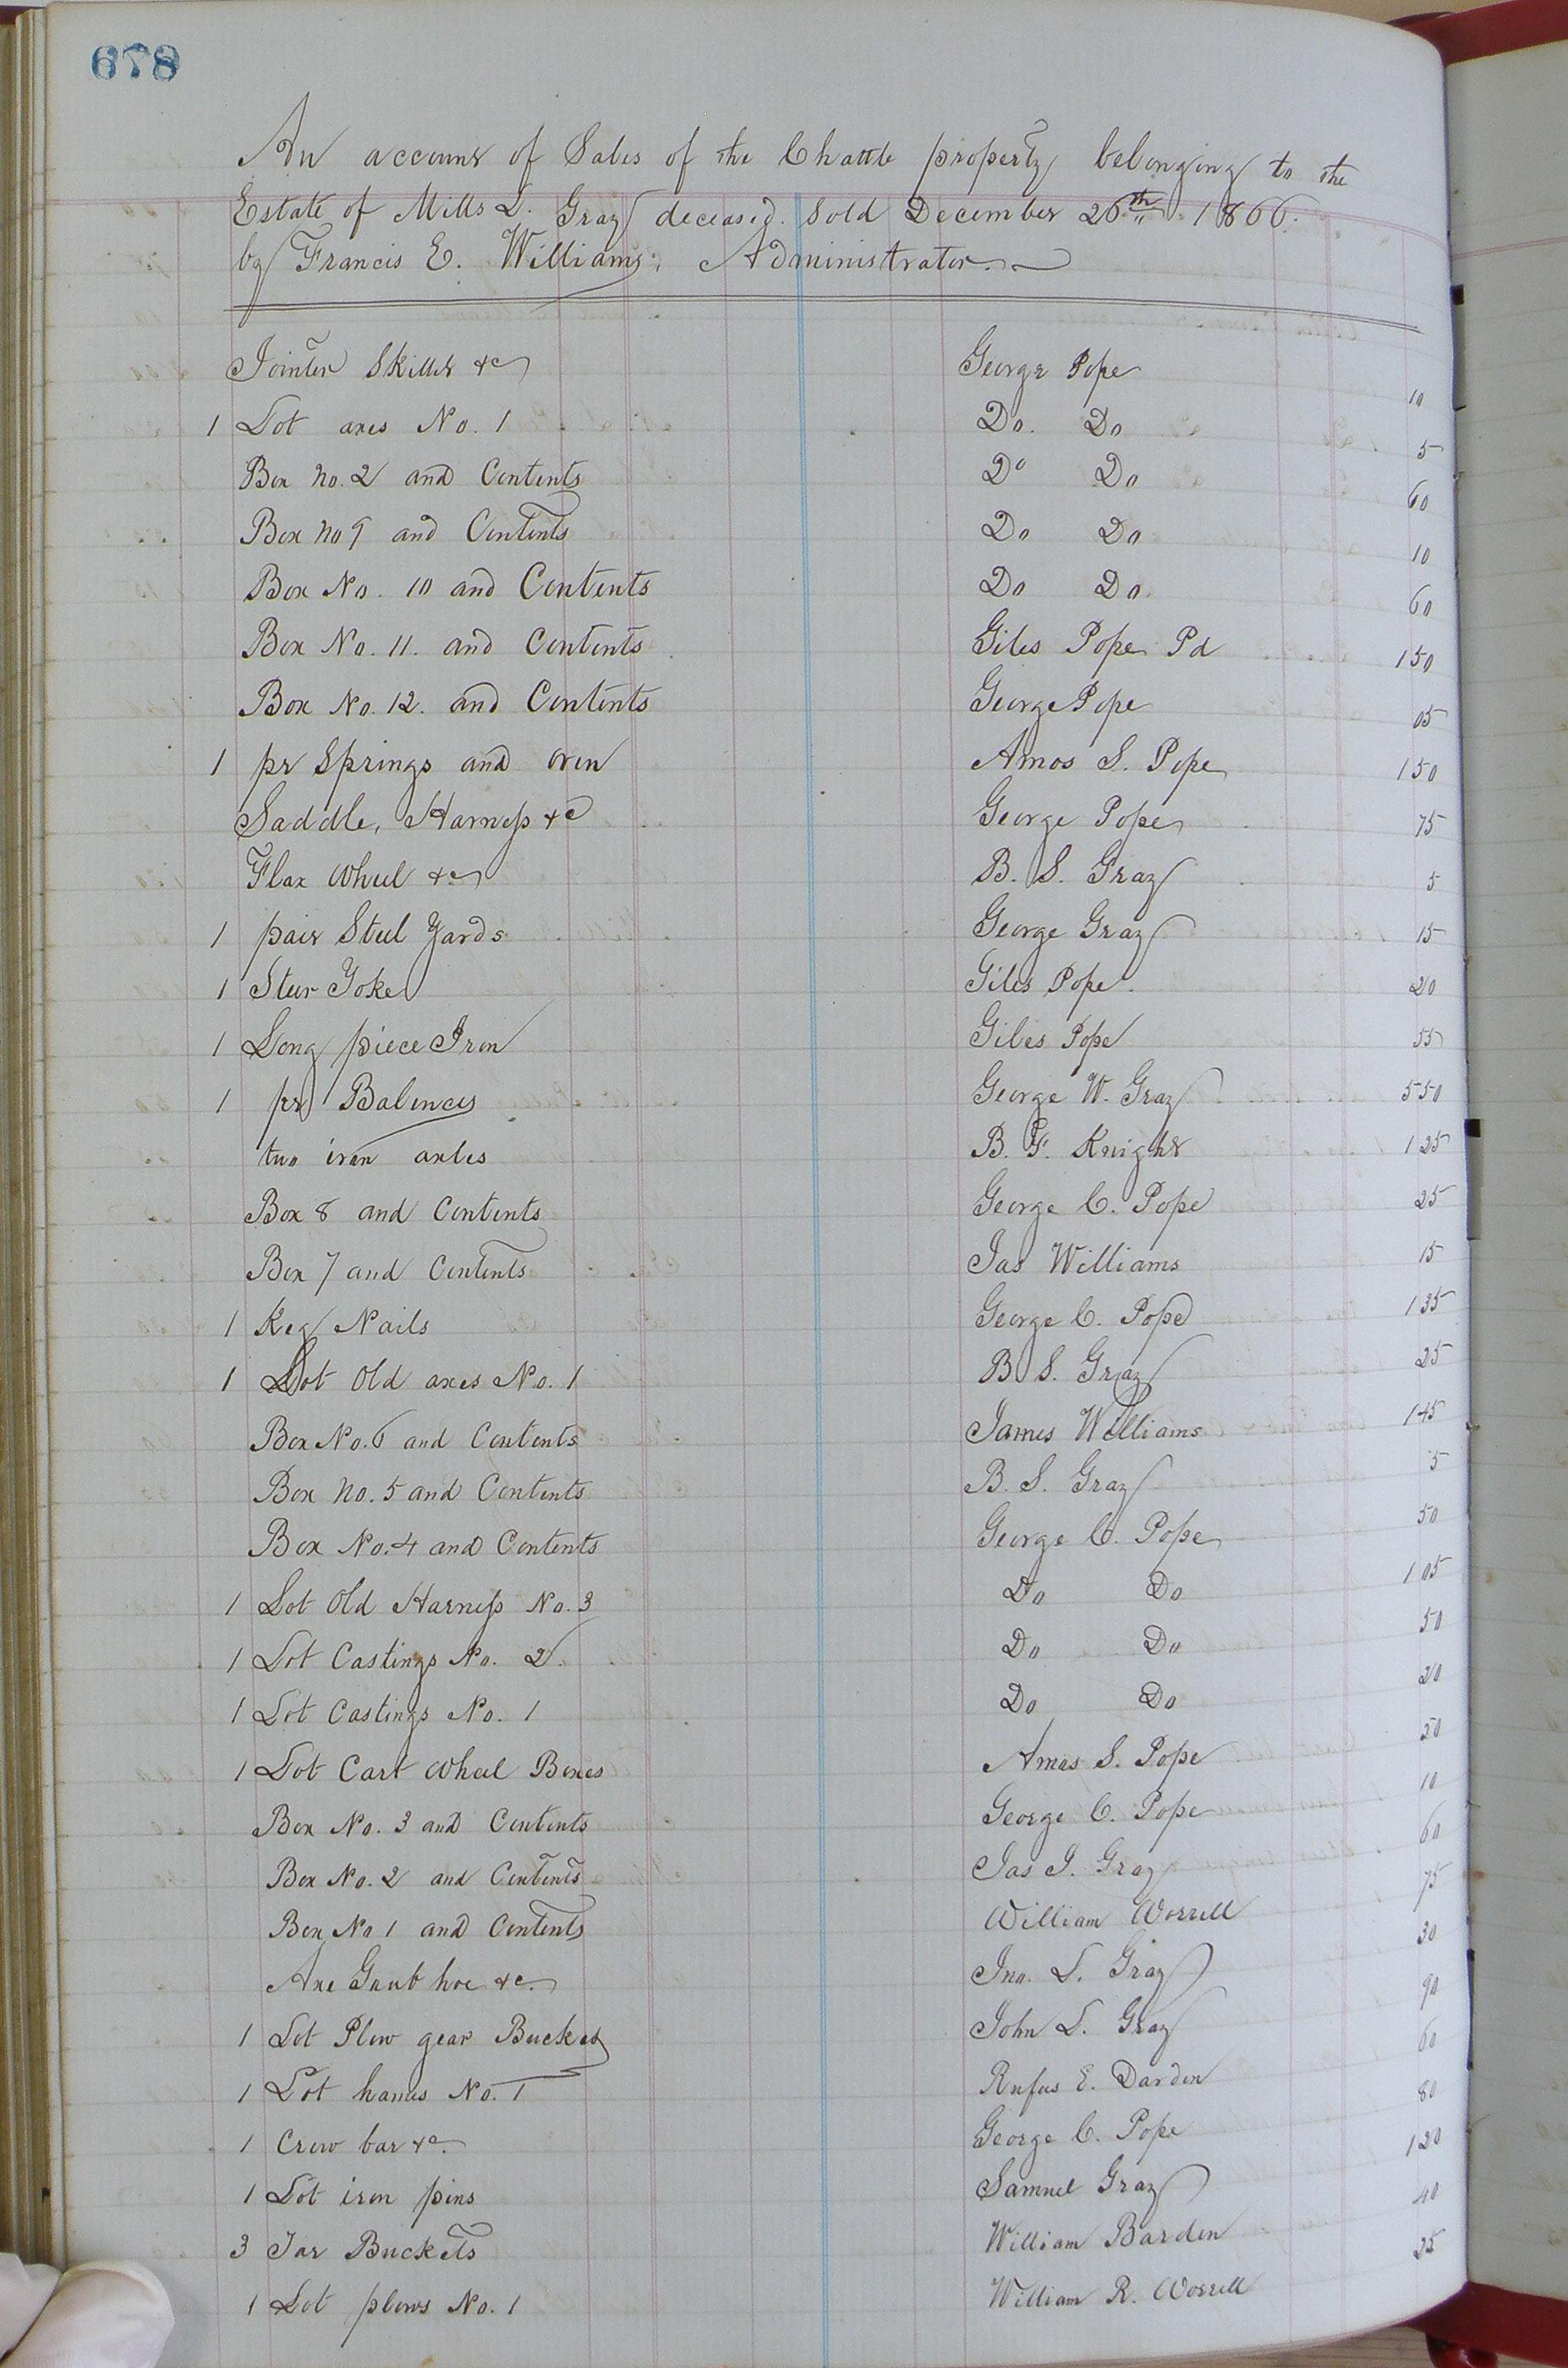 678
An account of Sales of the Chattle property belonging to the
Estate of Mills L. Gray deceased. Sold December 26th 1866.
by Francis E. Williams, Administrator.
Jointer Skillet &c George Pope 10
1 Lot axes No. 1 Do. Do 5
Box No. 2 and Contents Do Do 60
Box No 9 and Contents Do Do 10
Box No. 10 and Contents Do Do 60
Box No. 11. and Contents Giles Pope Pd 150
Box No. 12. and Contents George Pope 05
1 pr Springs and oven Amos S. Pope 150
Saddle, Harness &c George Pope 75
Flax Wheel &c B. S. Gray 5
1 pair Steel Yards George Gray 15
1 Steer Yoke Giles Pope 20
1 Long piece Iron Giles Pope 55
1 pr Balences George W. Gray 550
two iron axles B. F. Knight 125
Box 8 and Contents George C. Pope 25
Box 7 and Contents Jas Williams 15
1 Keg Nails George C. Pope 135
1 Lot Old axes No. 1 B S. Gray 25
Box No. 6 and Contents James Williams 145
Box No. 5 and Contents B. S. Gray 5
Box No. 4 and Contents George C. Pope 50
1 Lot Old Harness No. 3 Do Do 105
1 Lot Castings No. 2 Do Do 50
1 Lot Castings No. 1 Do Do 20
1 Lot Cart Wheel Boxes Amos S. Pope 50
Box No. 3 and Contents George C. Pope 10
Box No. 2 and Contents Jas J. Gray 60
Box No 1 and Contents William Worrell 75
Axe Grub hoe &c. Jno. L. Gray 30
1 Lot Plow gear Bucket John L. Gray 90
1 Lot hames No. 1 Rufus E. Darden 60
1 Crow bar &c. George C. Pope 80
1 Lot iron pins Samuel Gray 120
3 Tar Buckets William Barden 40
1 Lot plows No. 1 William R. Worrell 25